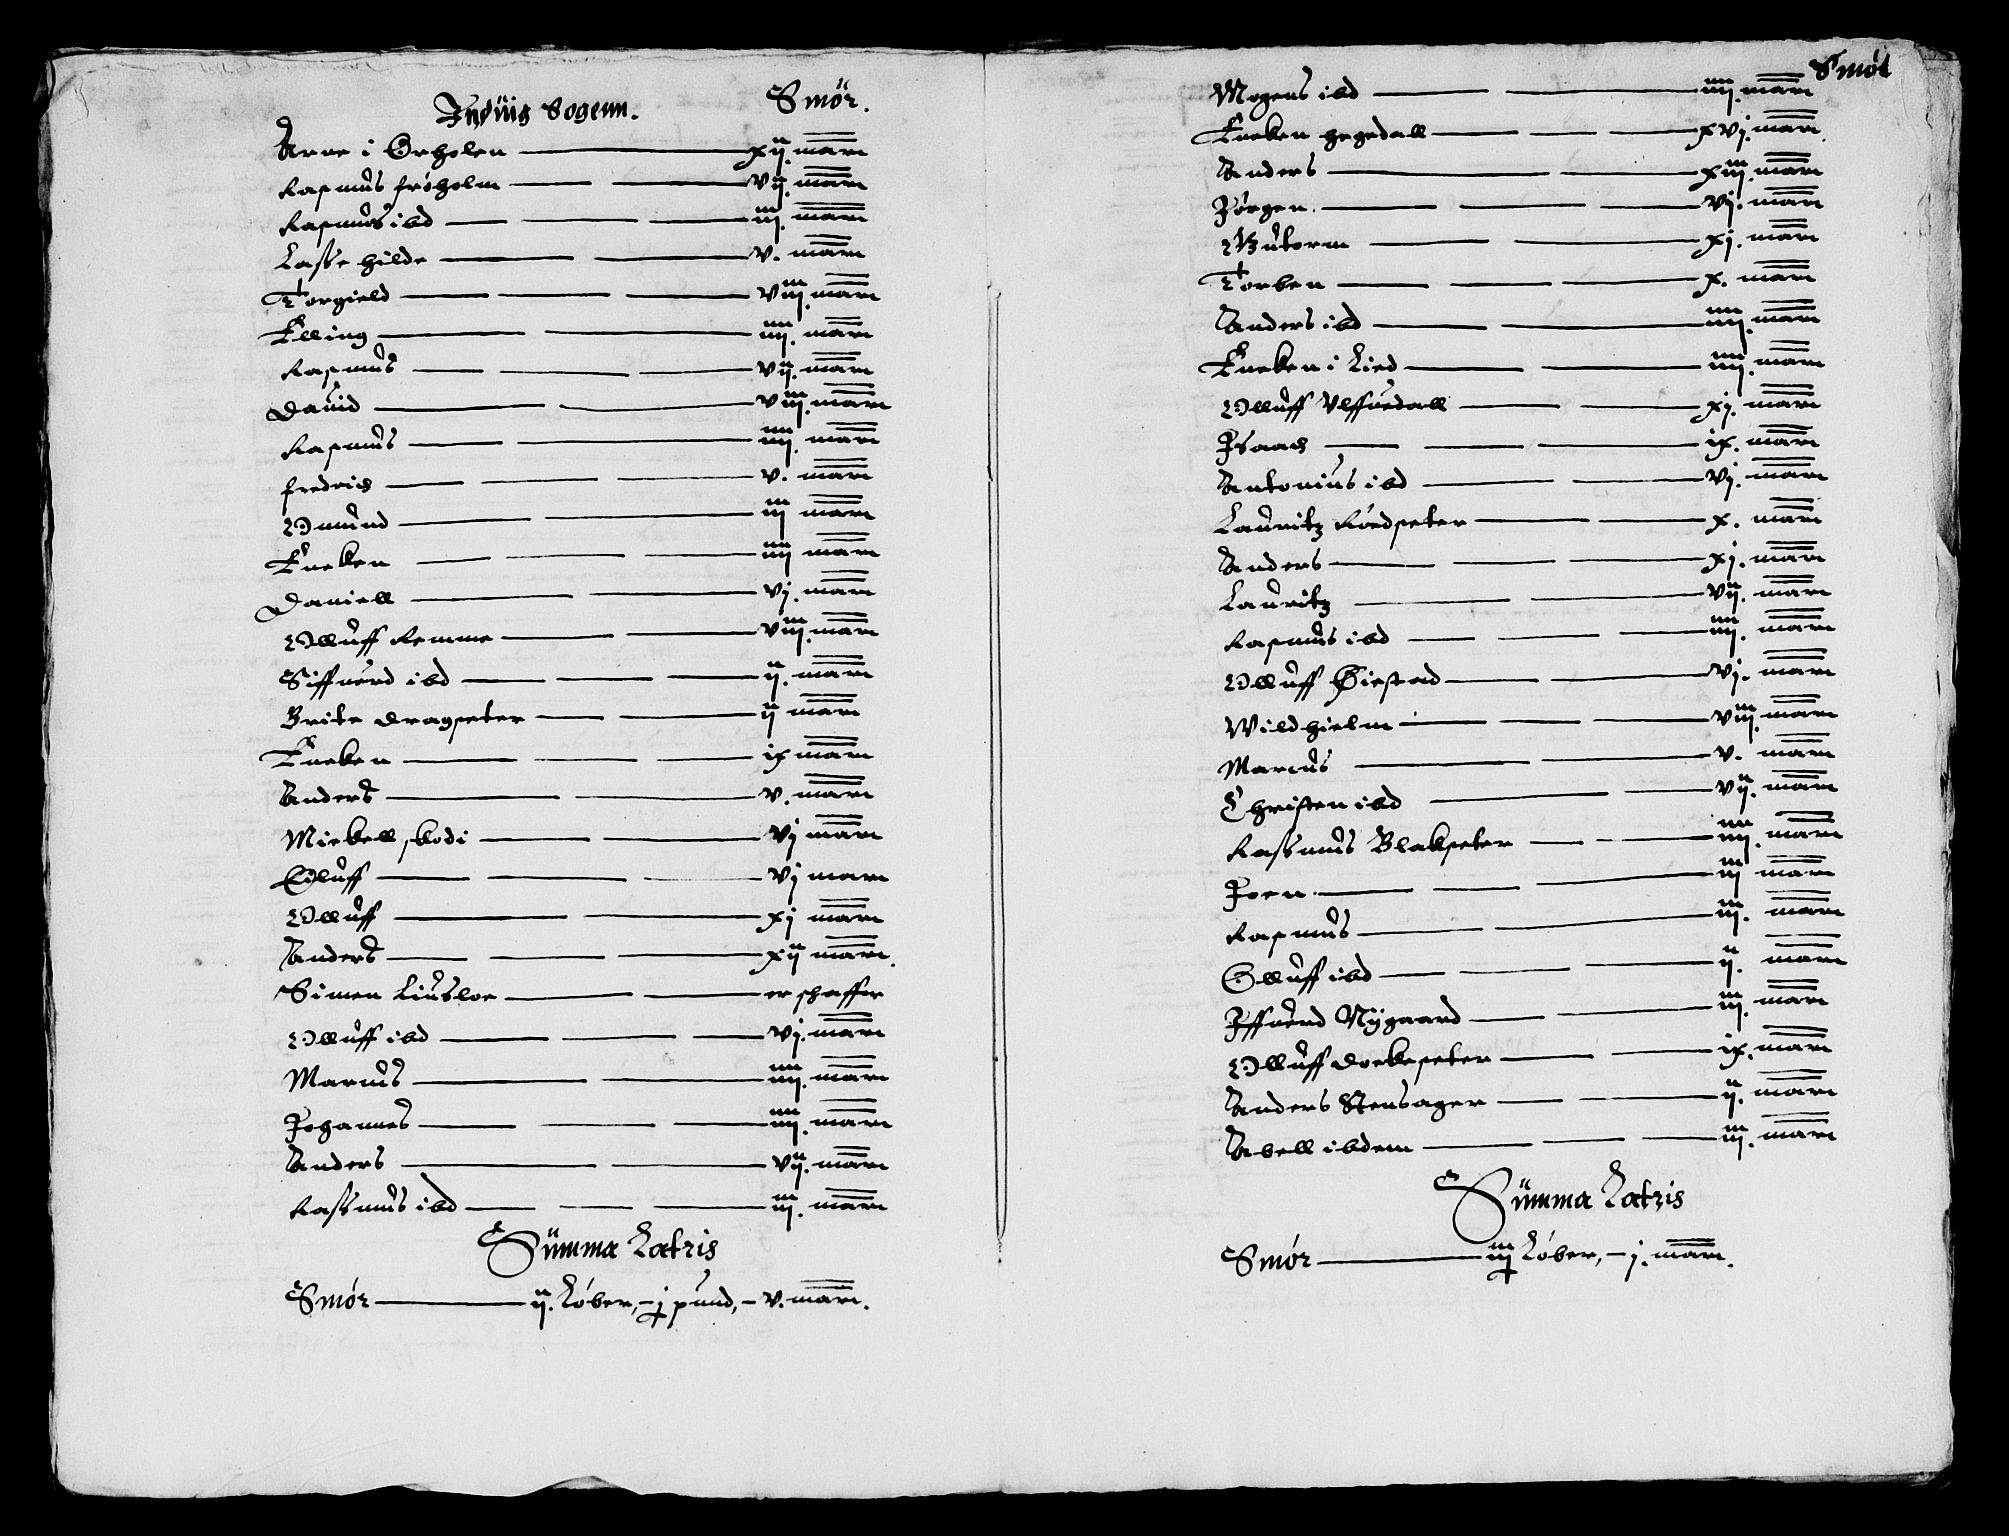 Indüig Sogenn. Smör.
Arne i Ørholen — xij. marc
Rasmus frøholm — vij. marc
Rasmus ibd — iij. marc
Lasse hilde — v. marc
Torgield — viij. marc
Elling — iiij. marc
Rasmus — vij. marc
Dauid — viij. marc
Rasmus — iiij. marc
fredrich — v. marc
Omund — iij marc
Eneken — iiij marc
Daniell — vj. marc
Olluff Remme — viij. marc
Siffuerd ibd — ij. marc
Brite Dragseter — ij marc
Eneken — ix marc
Anders — v. marc
Mickell skodi — vj marc
Oluff — vj marc
Olluff — xj marc
Anders — xij marc.
Simen Liusloe — er schaffer
Olluff ibd — vj. marc
Marcus — iiij. marc
Johannes — iiij. marc
Anders — vij. marc
Rassmus ibd — iij. marc
Summa Latris
Smör — ij. Löber, – j pund, – v. marc.
Smör
Mogens ibd — iiij. marc
Eneken hegedall — xvj. marc.
Anders — xiij. marc
Jörgen. — vj. marc
Gutorm — xj. marc
Torben — x. marc
Anders ibd — iiij. marc
Eneken i Lied — iiij. marc
Olluff Vlffuedall — xj. marc
Isaach — ix. marc
Antonius ibd — vj. marc
Lauritz Rödseter — x. marc
Anders — xj. marc
Lauritz — vij. marc
Rasmus ibd — iiij. marc
Olluff Øiestad — vj. marc
Wildhielm — viij. marc
Marcus — v. marc
Christen ibd — vij. marc
Rassmus Blakseter — iiij. marc
Joen. — iij marc
Rasmus — iij. marc
Olluff ibd — ij. marc
Iffuerd Nygaard — iij. marc
Olluff Dockeseter — ix. marc
Anders Stensager — ij. marc
Abell ibdem — iij. marc
Summa Latris
Smör — iij Löber, – j. marc.